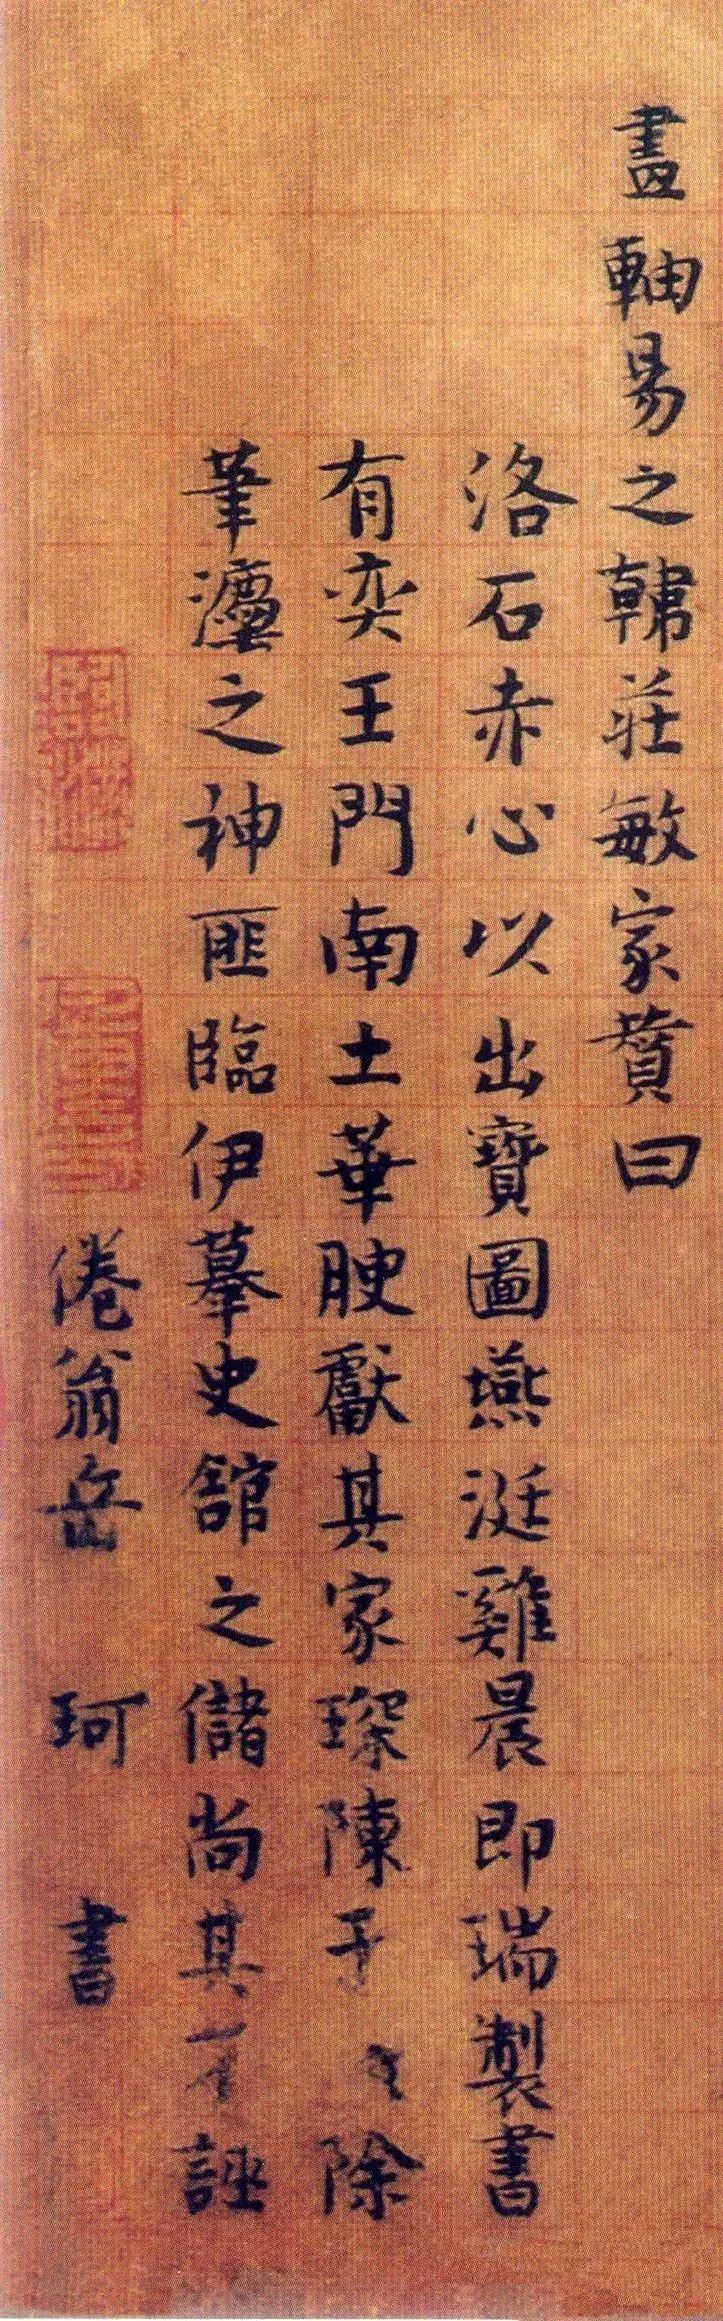 畫軸易之韓莊敏家贊曰
洛石赤心以出寶圖燕涎雞晨即瑞製書
有奕王門南土華腴獻其家琛陳于除
筆瀍之神匪臨伊摹史館之儲尚其誣
倦翁岳珂書